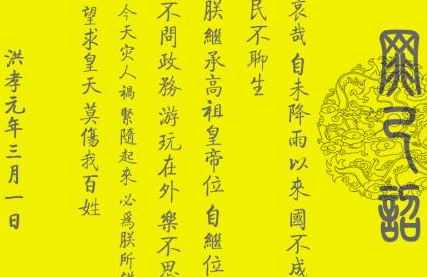 罪己詔
哀哉自未降雨以來國不成
民不聊生
朕繼承高祖皇帝位自繼位
不問政務游玩在外樂不思
今天灾人禍緊隨起來必爲朕所
望求皇天莫傷我百姓
洪孝元年三月一日